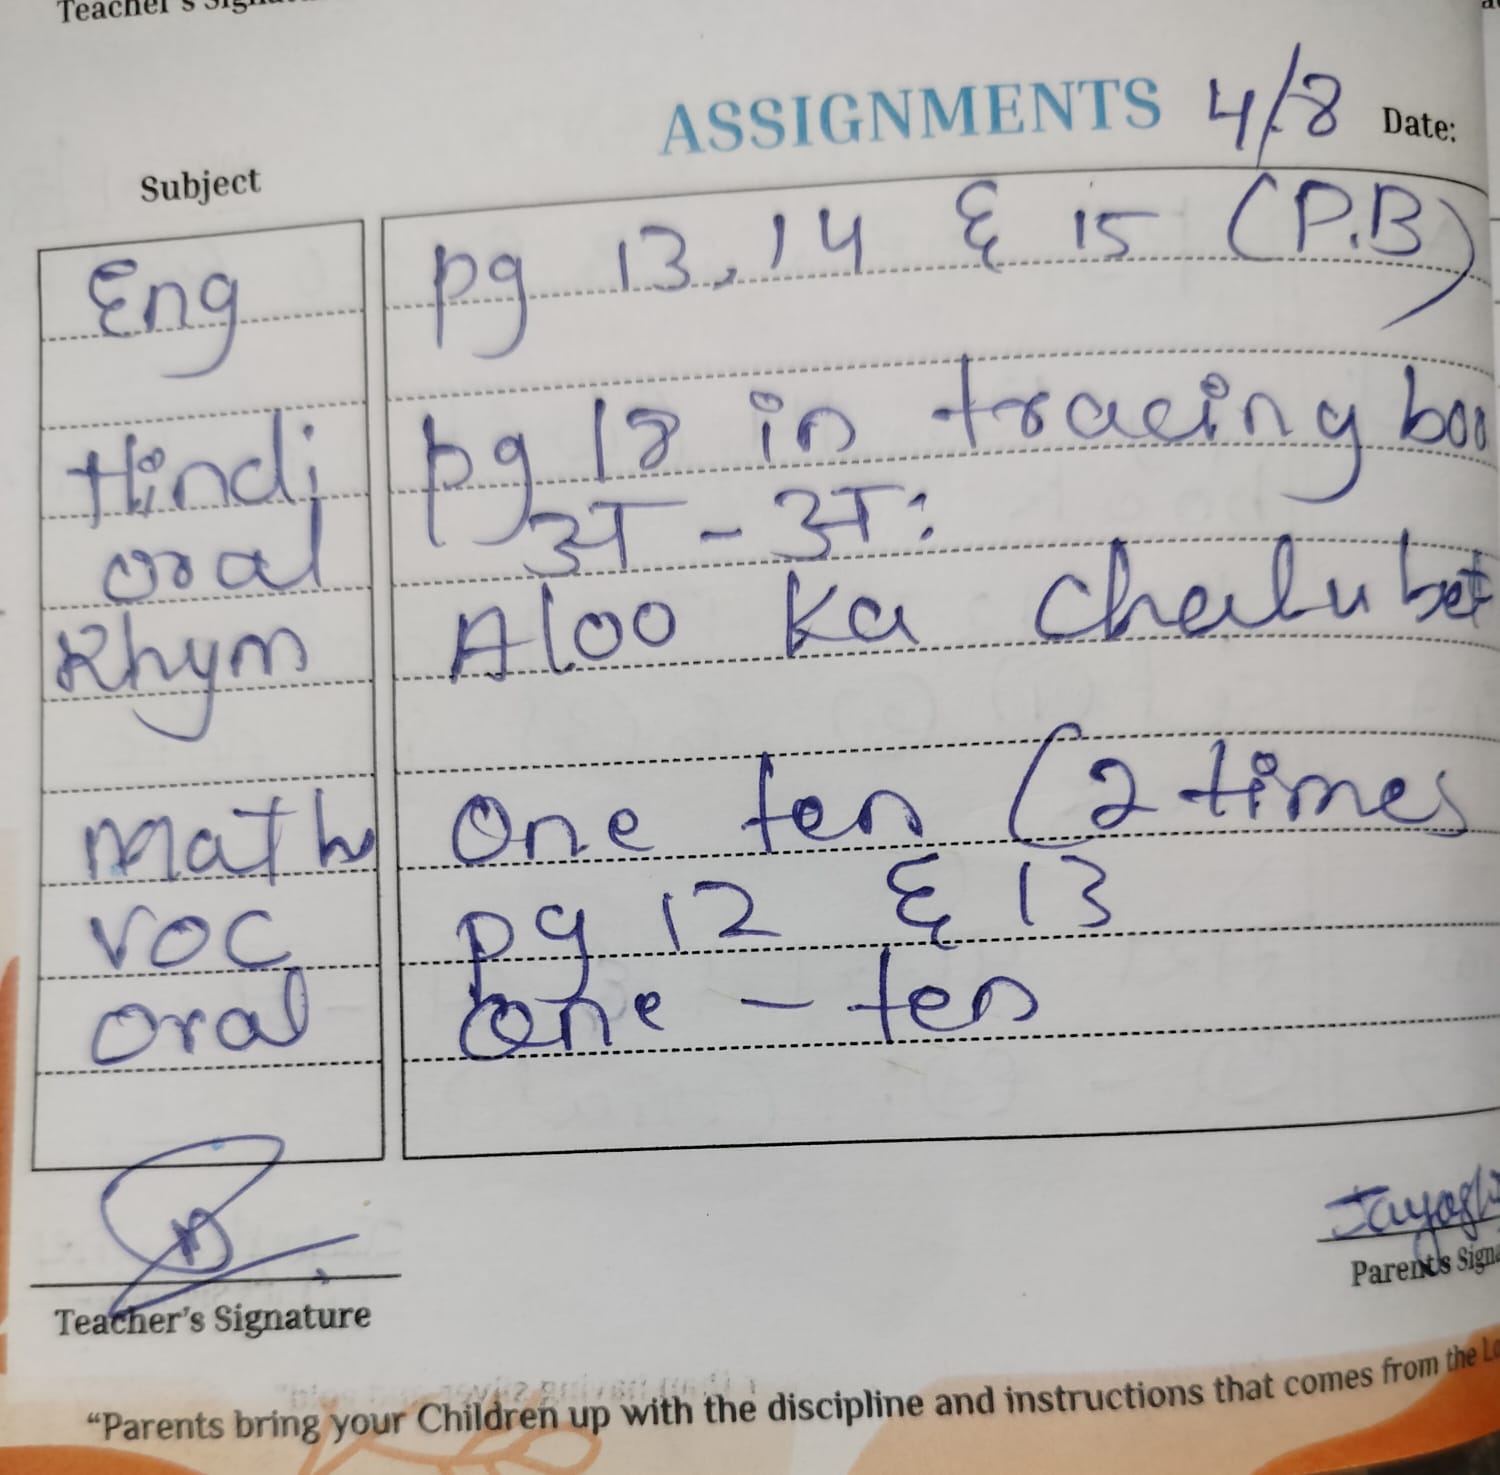 Teacher's
ASSIGNMENTS 4/8 Date:
Subject
Eng pg 13, 14 & 15 (P.B)
Hindi pg 18 in tracing boo
oral अ - अः
Rhym Aloo Ka Chalu bet
Math One ten (2 times
VOC pg 12 & 13
oral one - ten
Teacher's Signature
Parent's Signa
"Parents bring your Children up with the discipline and instructions that comes from the Lo